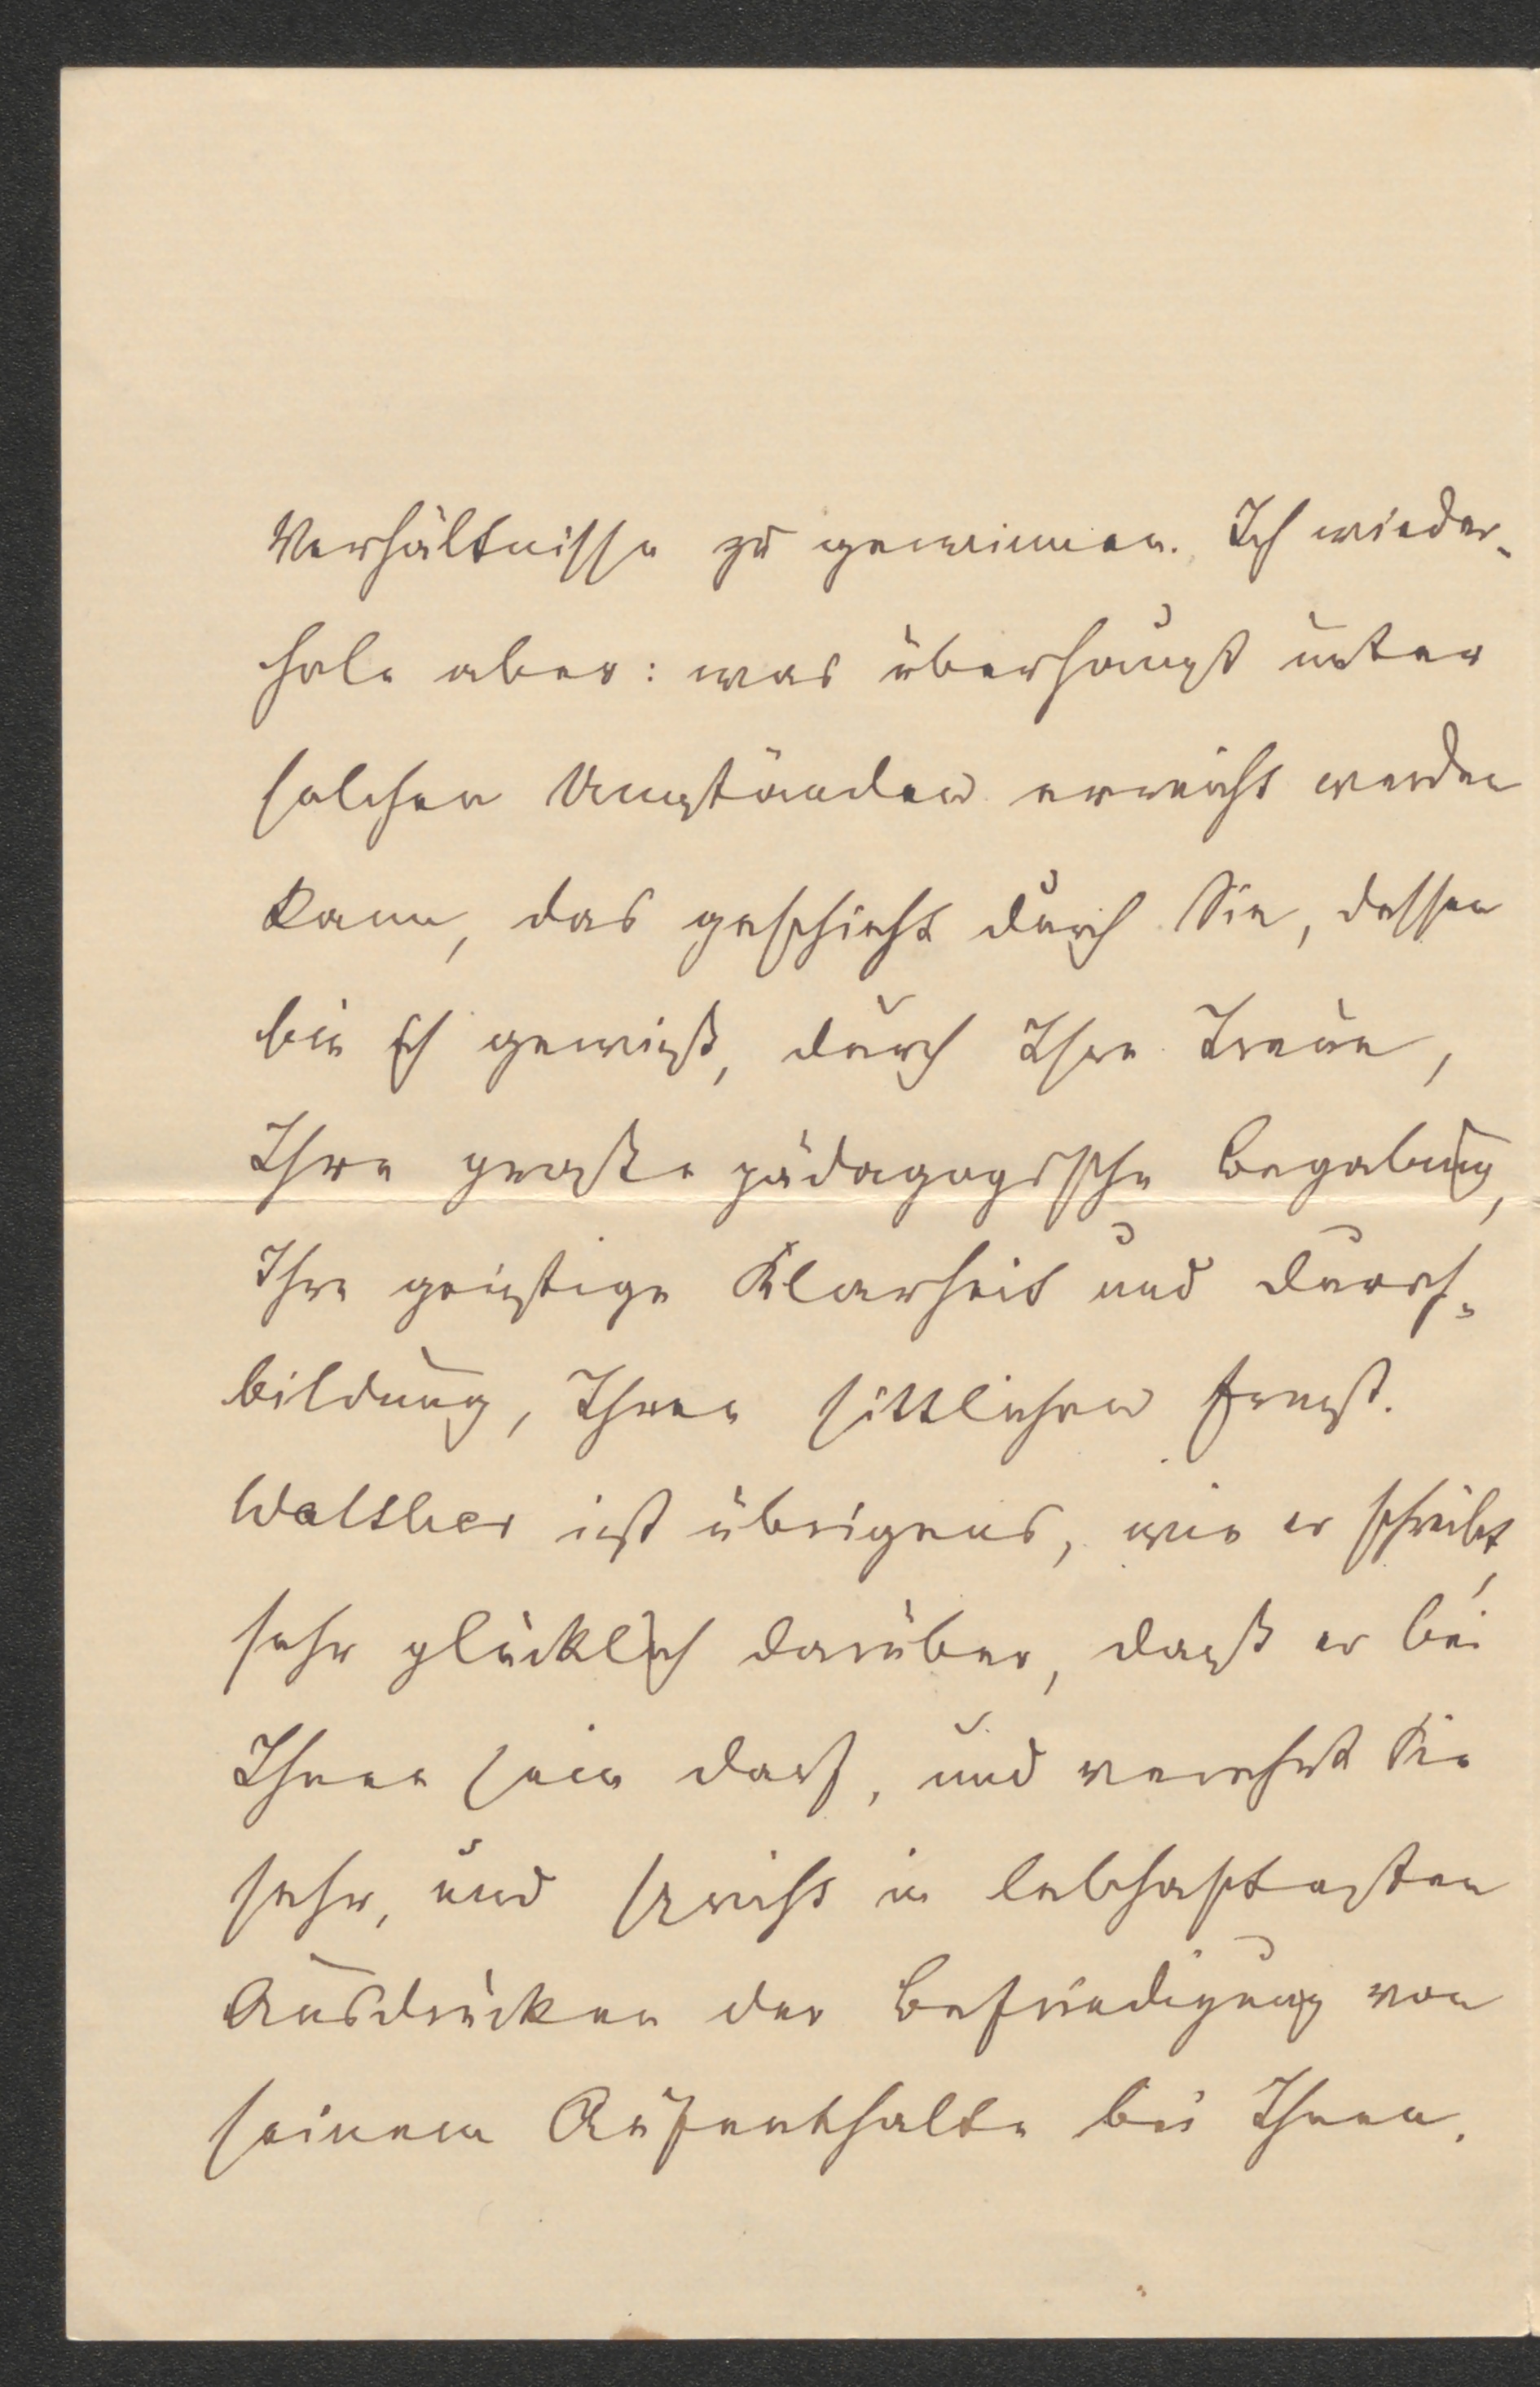 Verhältnisse zu gewinnen. Ich wieder-
hole aber: was überhaupt unter
solchen Umständen erreicht werden
kann, das geschieht durch Sie, dessen
bin ich gewiß, durch Ihre Treue,
Ihre große pädagogische Begabung,
Ihre geistige Klarheit und Durch-
bildung, Ihren sittlichen Ernst.
Walther ist übrigens, wie er schreibt,
sehr glücklich darüber, daß er bei
Ihnen sein darf, und verehrt Sie
sehr, und spricht in lebhaftesten
Ausdrücken der Befriedigung von
seinem Aufenthalte bei Ihnen.